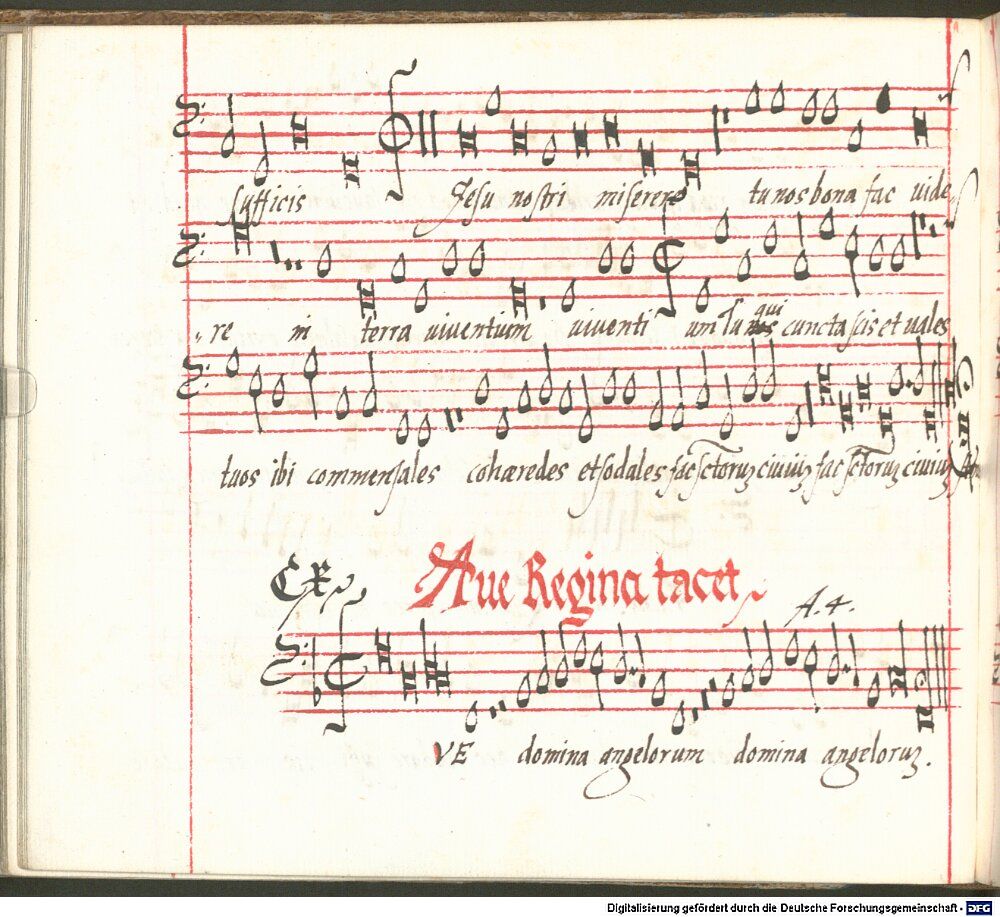 sufficis Jesu nostri miserere tu nos bona fac vide
re in terra viventium viventi um Tu qui cuncta scis et vales
tuos ibi commensales cohæredes et sodales fac sctoruz civiuz fac sctoruz civiuz
CX
Ave Regina tacet
A. 4.
VE domina angelorum domina angeloruz.
Digitalisierung gefördert durch die Deutsche Forschungsgemeinschaft - DFG